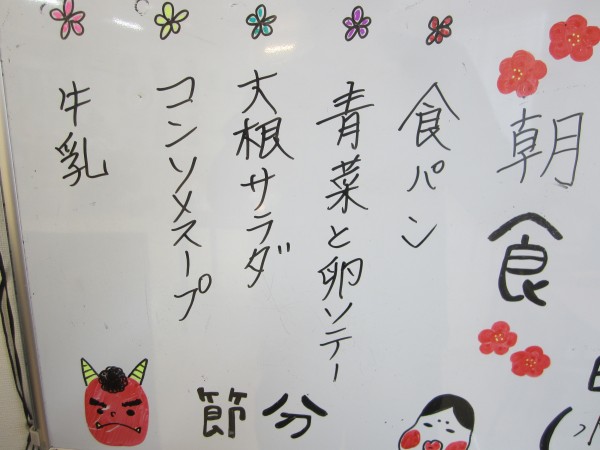 朝食
食パン
青菜と卵ソテー
大根サラダ
コンソメスープ
牛乳
節分